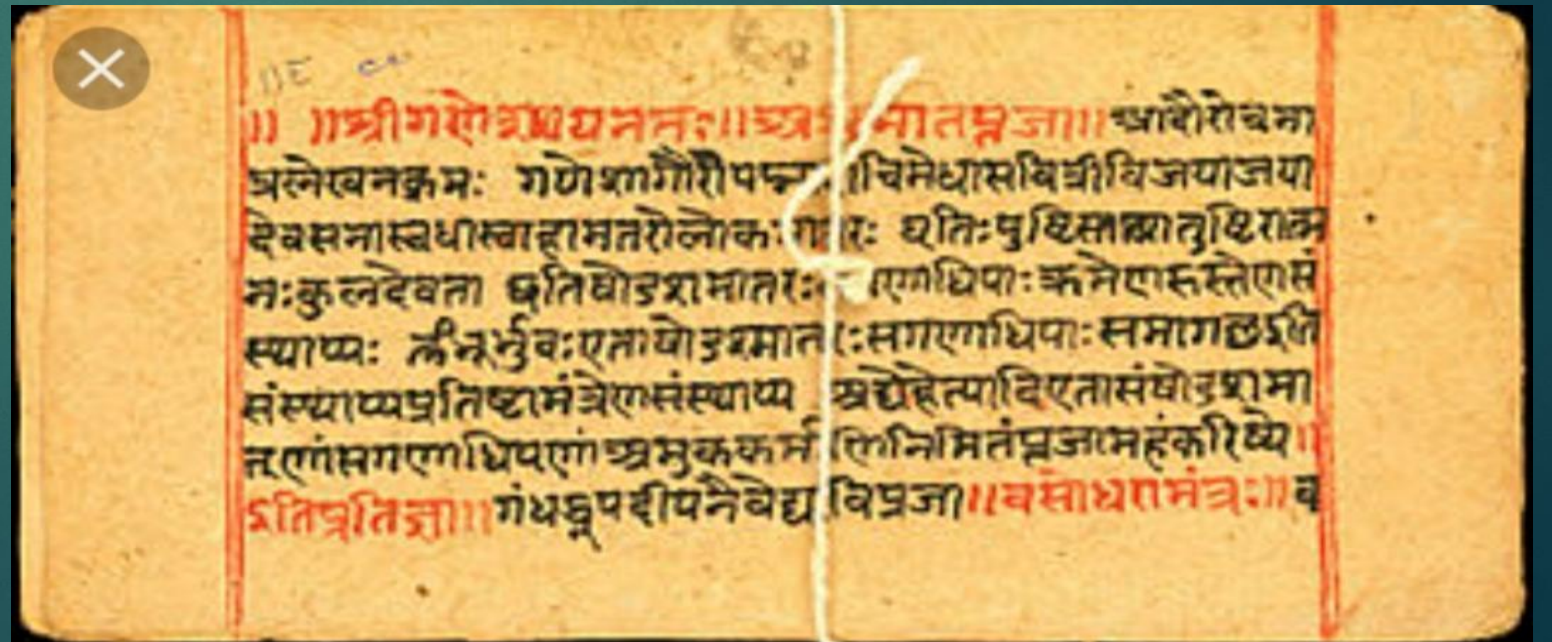 ॥ ॥श्रीगणेशायनमः॥अथ मातपूजा॥आदौरोचना
प्रलेखनक्रमः गणेशगौरीपद्मा चिमेधासवित्रीविजयाजया
देवसेनास्वधास्वाहामतरोलोक मातरः धृतिःपुष्टिस्तथातुष्टिरात्म
नःकुलदेवता धृतिषोडशमातरः गणाधिपाःक्रमेणहस्तेएसं
स्थाप्यः भूर्भुवःएताषोडशमातरःसगणाधिपाः
संस्थाप्यप्रतिष्टामंत्रेणसंस्थाप्य अद्येहेत्यादिएतासंषोडशमा
तृणांसगणाधिपणांअमुककर्मणिनिमितंपूजामहंकरिष्ये॥
इतिप्रतिज्ञा॥गंधधूपदीपनैवेद्य विपूजा॥वसोधरामंत्रः॥व